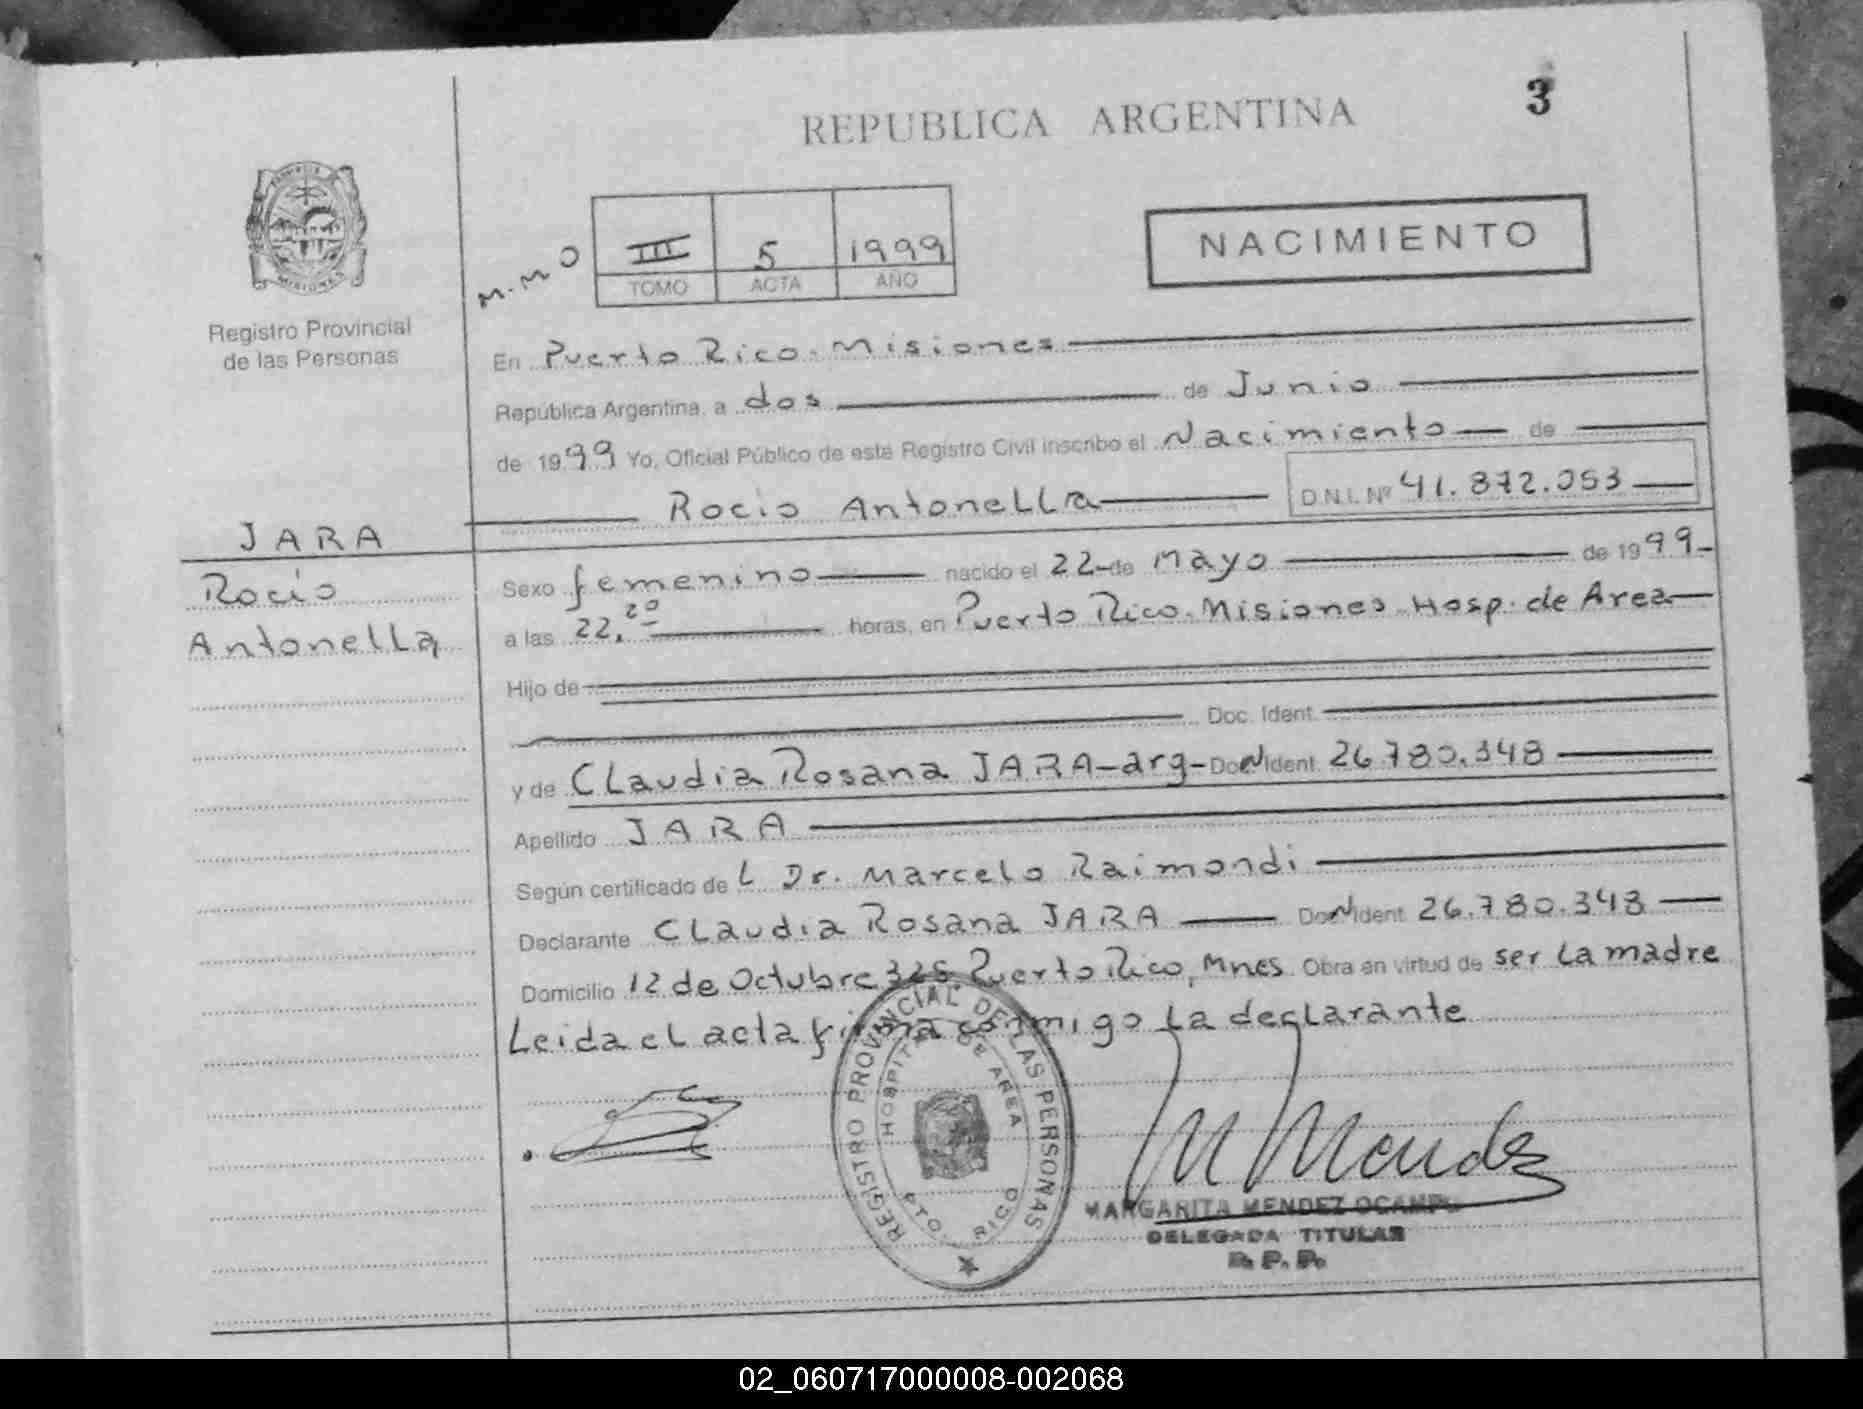 3
REPUBLICA ARGENTINA
III 5 1999
TOMO ACTA AÑO
M.M O
NACIMIENTO
MISIONES
Registro Provincial
de las Personas
En Puerto Rico. Misiones
República Argentina, a dos de Junio
de 1999 Yo, Oficial Público de este Registro Civil inscribo el Nacimiento de
Rocio Antonella D.N.I. Nº 41.872.053
JARA
Rocio
Antonella
Sexo femenino nacido el 22 de Mayo de 1999-
a las 22,20 horas, en Puerto Rico. Misiones Hosp. de Area
Hijo de
Doc. Ident.
y de Claudia Rosana JARA-arg- Doc. Ident. 26.780.348
Apellido JARA
Según certificado de L Dr. Marcelo Raimondi
Declarante Claudia Rosana JARA Doc. Ident. 26.780.348
Domicilio 12 de Octubre 325 Puerto Rico, Mnes Obra en virtud de ser La madre
Leida el acta firma conmigo La declarante
REGISTRO PROVINCIAL DE LAS PERSONAS
HOSPITAL DE AREA
PTO. RICO
M Mendez
MARGARITA MENDEZ OCAMPO
DELEGADA TITULAR
R. P. P.
02_060717000008-002068